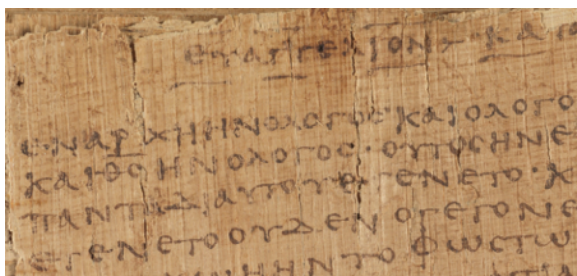 ΕΥΑΓΓΕΛΙΟΝ ΚΑΤ
ΕΝΑΡΧΗΗΝΟΛΟΓΟϹΚΑΙΟΛΟΓΟ
ΚΑΙΘ̅Ϲ̅ΗΝΟΛΟΓΟϹ·ΟΥΤΟϹΗΝΕ
ΠΑΝΤΑΔΙΑΥΤΟΥΕΓΕΝΕΤΟ·Κ
ΕΓΕΝΕΤΟΟΥΔΕΝΟΓΕΓΟΝΕ
ΗΗΝΤΟΦΩϹΤΩ